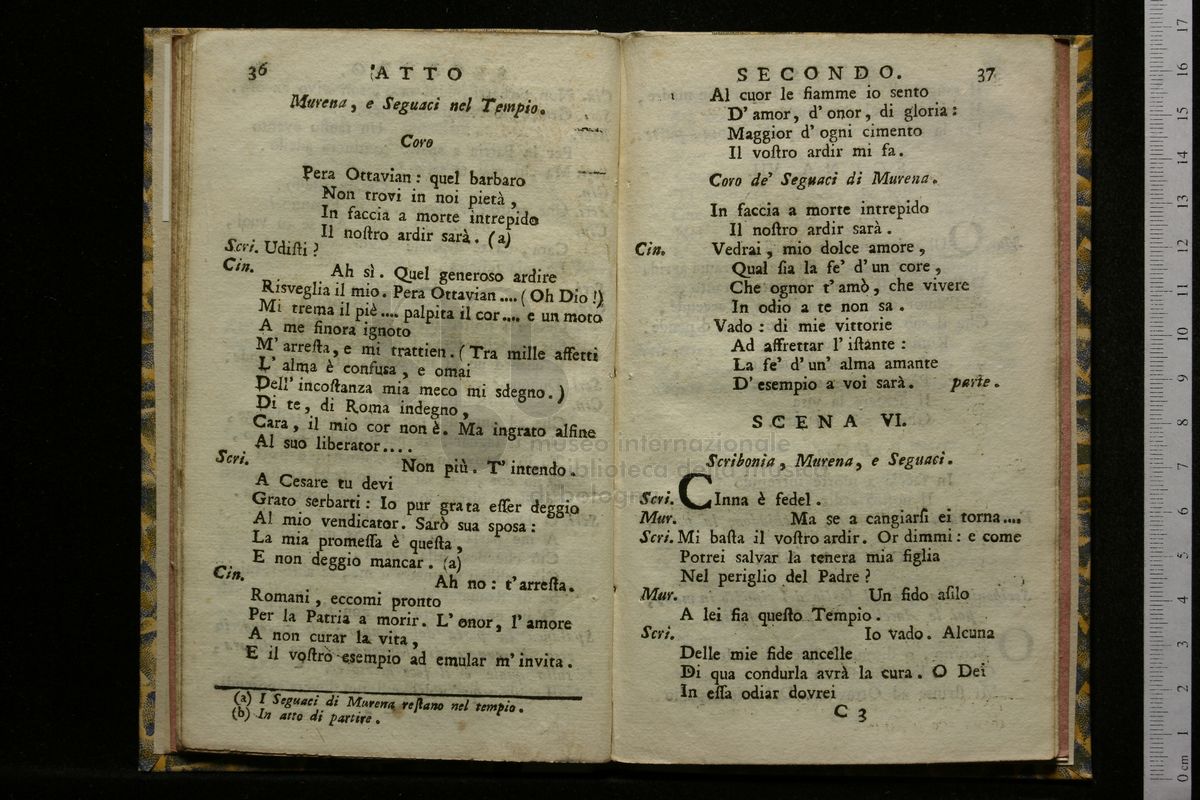 36
ATTO
Murena, e Seguaci nel Tempio.
Coro
Pera Ottavian: quel barbaro
Non trovi in noi pietà,
In faccia a morte intrepido
Il noſtro ardir sarà. (a)
Scri. Udiſti?
Cin. Ah sì. Quel generoso ardire
Risveglia il mio. Pera Ottavian.... (Oh Dio!)
Mi trema il piè.... palpita il cor.... e un moto
A me finora ignoto
M'arreſta, e mi trattien. (Tra mille affetti
L'alma è confusa, e omai
Dell'incoſtanza mia meco mi sdegno.)
Di te, di Roma indegno,
Cara, il mio cor non è. Ma ingrato alfine
Al suo liberator....
Scri. Non più. T'intendo.
A Cesare tu devi
Grato serbarti: Io pur grata eſſer deggio
Al mio vendicator. Sarò sua sposa:
La mia promeſſa è queſta,
E non deggio mancar. (a)
Cin. Ah no: t'arreſta.
Romani, eccomi pronto
Per la Patria a morir. L'onor, l'amore
A non curar la vita,
E il voſtro esempio ad emular m'invita.
(a) I Seguaci di Murena reſtano nel tempio.
(b) In atto di partire.
SECONDO.
37
Al cuor le fiamme io sento
D'amor, d'onor, di gloria:
Maggior d'ogni cimento
Il voſtro ardir mi fa.
Coro de' Seguaci di Murena.
In faccia a morte intrepido
Il noſtro ardir sarà.
Cin. Vedrai, mio dolce amore,
Qual ſia la fe' d'un core,
Che ognor t'amò, che vivere
In odio a te non sa.
Vado: di mie vittorie
Ad affrettar l'iſtante:
La fe' d'un' alma amante
D'esempio a voi sarà. parte.
SCENA VI.
Scribonia, Murena, e Seguaci.
Scri. CInna è fedel.
Mur. Ma se a cangiarſi ei torna....
Scri. Mi baſta il voſtro ardir. Or dimmi: e come
Potrei salvar la tenera mia figlia
Nel periglio del Padre?
Mur. Un fido aſilo
A lei ſia queſto Tempio.
Scri. Io vado. Alcuna
Delle mie fide ancelle
Di qua condurla avrà la cura. O Dei
In eſſa odiar dovrei
C 3
museo internazionale
biblioteca della musica
di bologna
17
16
15
14
13
12
11
10
9
8
7
6
5
4
3
2
1
0 cm